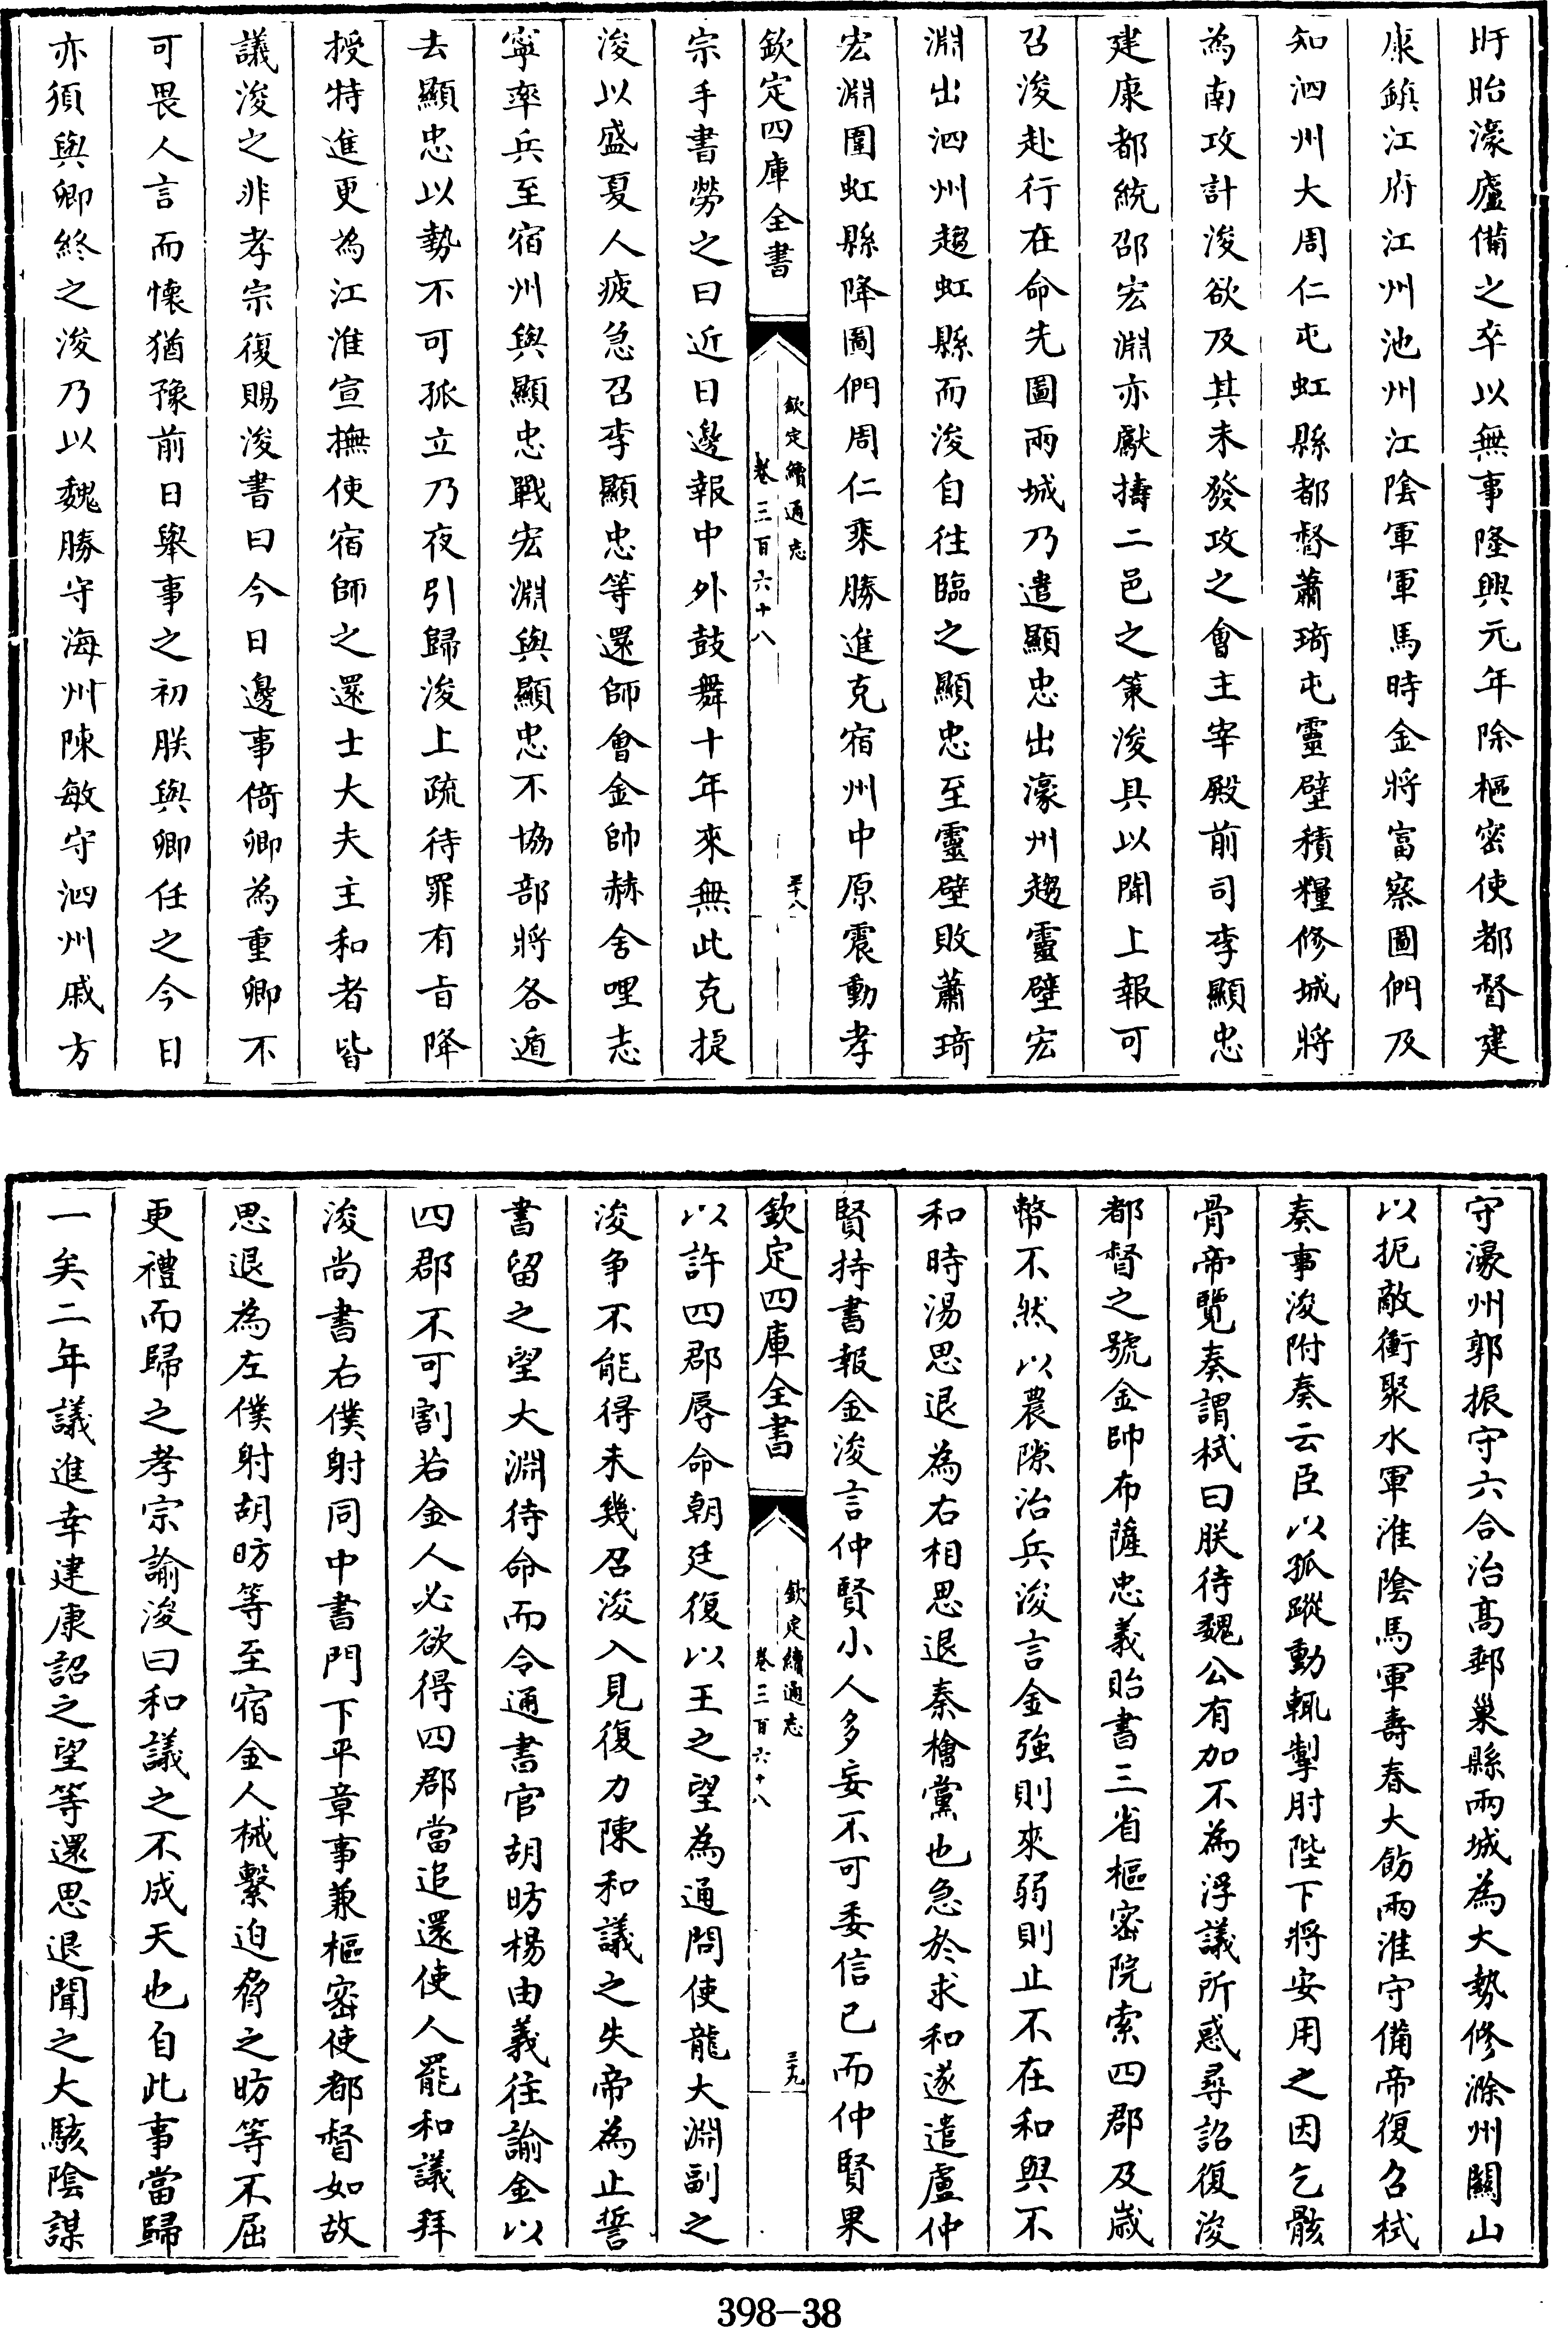 盱眙濠廬備之卒以無事隆興元年除樞密使都督建
康鎮江府江州池州江陰軍軍馬時金將富察圖們及
知泗州大周仁屯虹縣都督蕭琦屯靈壁積糧修城將
為南攻計浚欲及其未發攻之會主宰殿前司李顯忠
建康都統邵宏淵亦獻擣二邑之策浚具以聞上報可
召浚赴行在命先圖兩城乃遣顯忠出濠州趨靈壁宏
淵出泗州趨虹縣而浚自往臨之顯忠至靈壁敗蕭琦
宏淵圍虹縣降圖們周仁乘勝進克宿州中原震動孝
欽定四庫全書
欽定續通志
卷三百六十八
三十八
宗手書勞之曰近日邊報中外鼓舞十年來無此克捷
浚以盛夏人疲急召李顯忠等還師會金帥赫舍哩志
寧率兵至宿州與顯忠戰宏淵與顯忠不協部將各遁
去顯忠以勢不可孤立乃夜引歸浚上疏待罪有旨降
授特進更為江淮宣撫使宿師之還士大夫主和者皆
議浚之非孝宗復賜浚書曰今日邊事倚卿為重卿不
可畏人言而懷猶豫前日舉事之初朕與卿任之今日
亦須與卿終之浚乃以魏勝守海州陳敏守泗州戚方
守濠州郭振守六合治高郵巢縣兩城為大勢修滁州關山
以扼敵衝聚水軍淮陰馬軍壽春大飭兩淮守備帝復召栻
奏事浚附奏云臣以孤蹤動輒掣肘陛下將安用之因乞骸
骨帝覽奏謂栻曰朕待魏公有加不為浮議所惑尋詔復浚
都督之號金帥布薩忠義貽書三省樞密院索四郡及歲
幣不然以農隙治兵浚言金強則來弱則止不在和與不
和時湯思退為右相思退秦檜黨也急於求和遂遣盧仲
賢持書報金浚言仲賢小人多妄不可委信已而仲賢果
欽定四庫全書
欽定續通志
卷三百六十八
三十九
以許四郡辱命朝廷復以王之望為通問使龍大淵副之
浚爭不能得未幾召浚入見復力陳和議之失帝為止誓
書留之望大淵待命而令通書官胡昉楊由義往諭金以
四郡不可割若金人必欲得四郡當追還使人罷和議拜
浚尚書右僕射同中書門下平章事兼樞密使都督如故
思退為左僕射胡昉等至宿金人械繫迫脅之昉等不屈
更禮而歸之孝宗諭浚曰和議之不成天也自此事當歸
一矣二年議進幸建康詔之望等還思退聞之大駭陰謀
398-38